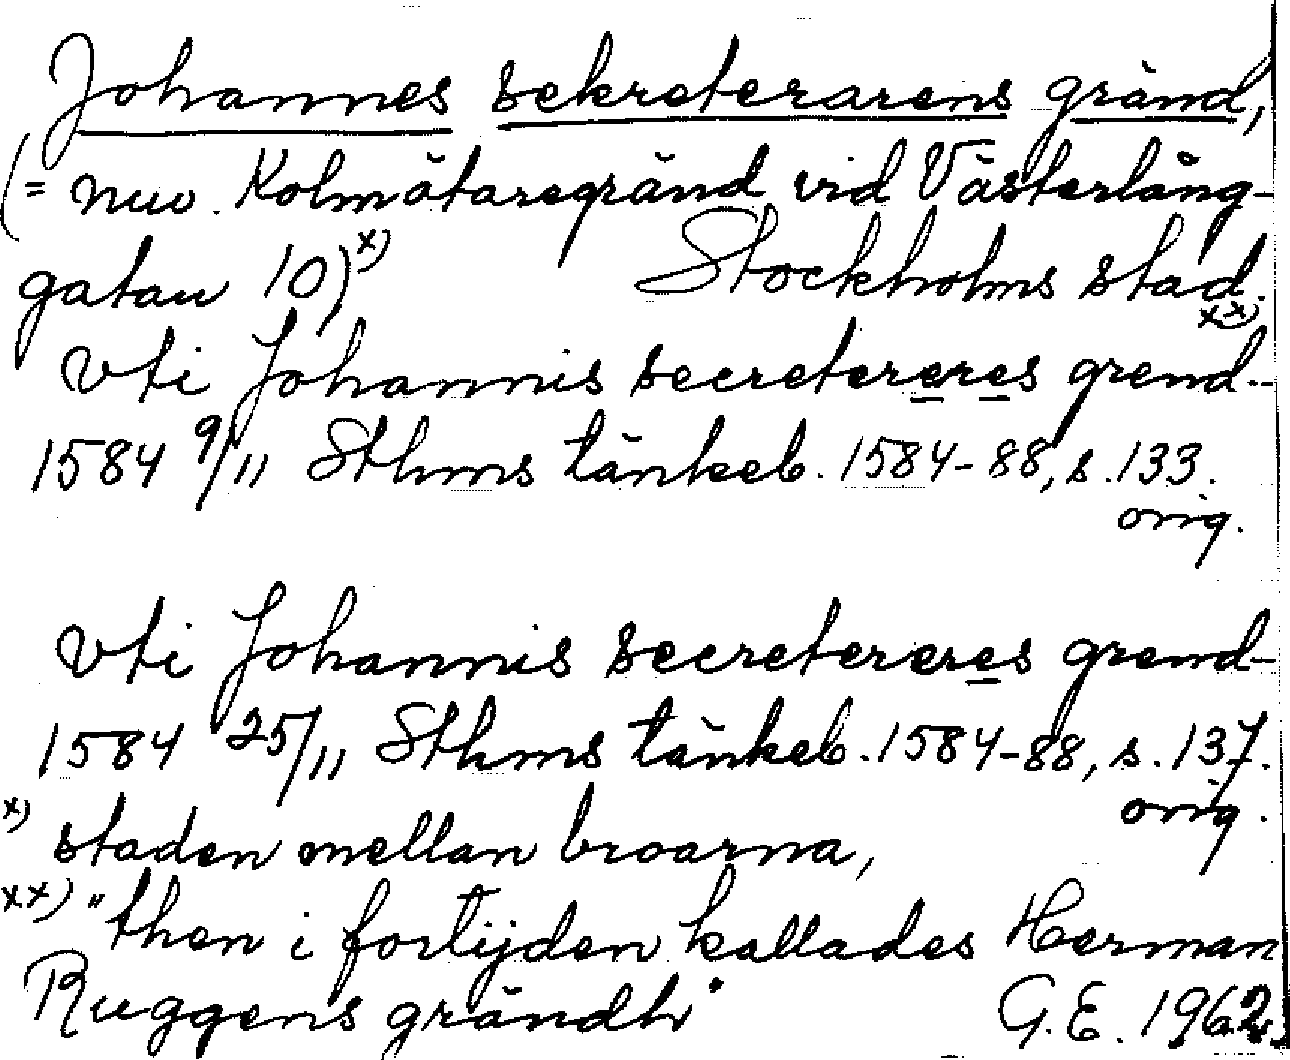 Johannes sekreterarens gränd,
(= nuv. Kolmätaregränd vid Västerlång-
gatan 10)x) Stockholms stad.
vti Johannis secretereres grend.. xx)
1584 9/11 Sthms tänkeb. 1584-88, s. 133.
orig.
vti Johannis secretereres grend-
1584 25/11 Sthms tänkeb. 1584-88, s. 137.
orig.
x) staden mellan broarna,
xx) "then i fortijden kallades Herman
Ruggens grändh" G.E. 1962.